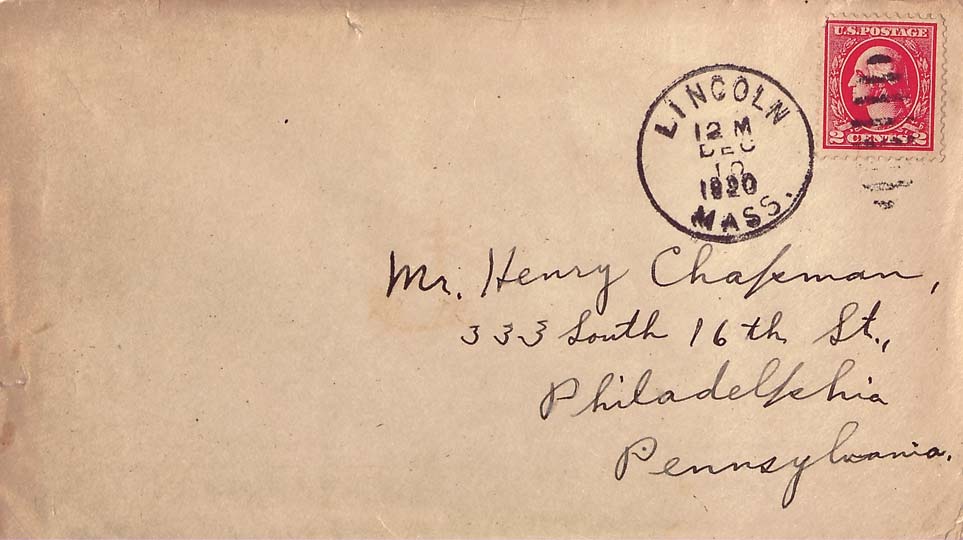 U.S. POSTAGE
2 CENTS 2
LINCOLN
12 M
DEC
1920
MASS.
Mr. Henry Chapman,
333 South 16th St.,
Philadelphia
Pennsylvania.